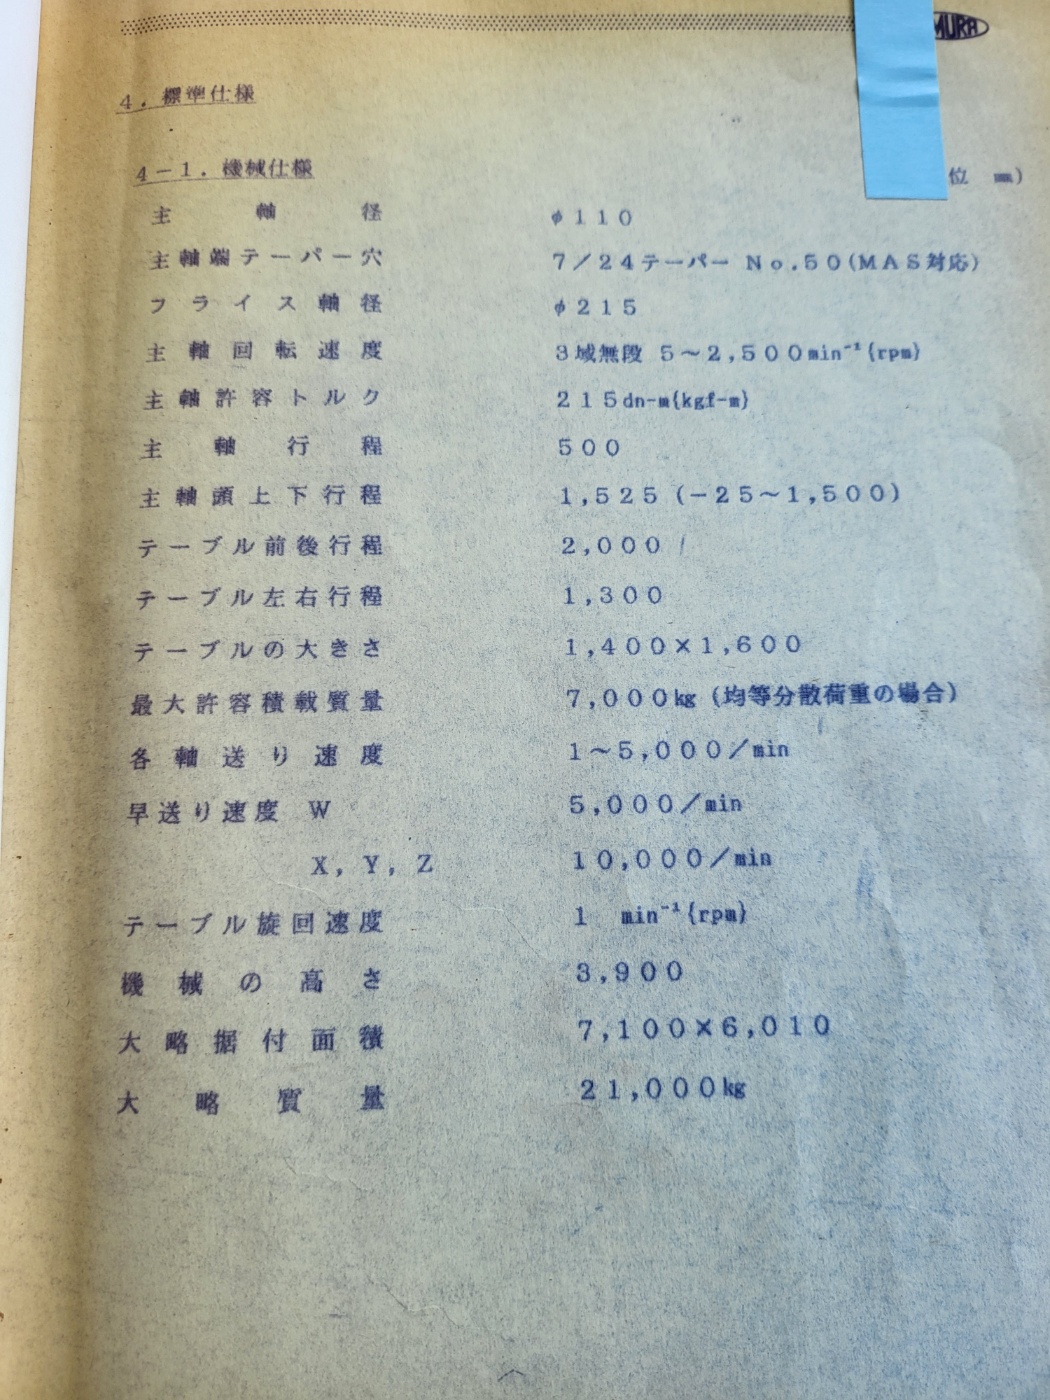 MURA
4. 標準仕様
4-1. 機械仕様
位 mm)
主軸径 φ110
主軸端テーパー穴 7/24テーパー No.50(MAS対応)
フライス軸径 φ215
主軸回転速度 3域無段 5~2,500min⁻¹{rpm}
主軸許容トルク 215dn-m{kgf-m}
主軸行程 500
主軸頭上下行程 1,525 (-25~1,500)
テーブル前後行程 2,000
テーブル左右行程 1,300
テーブルの大きさ 1,400×1,600
最大許容積載質量 7,000kg (均等分散荷重の場合)
各軸送り速度 1~5,000/min
早送り速度 W 5,000/min
X, Y, Z 10,000/min
テーブル旋回速度 1 min⁻¹{rpm}
機械の高さ 3,900
大略据付面積 7,100×6,010
大略質量 21,000kg